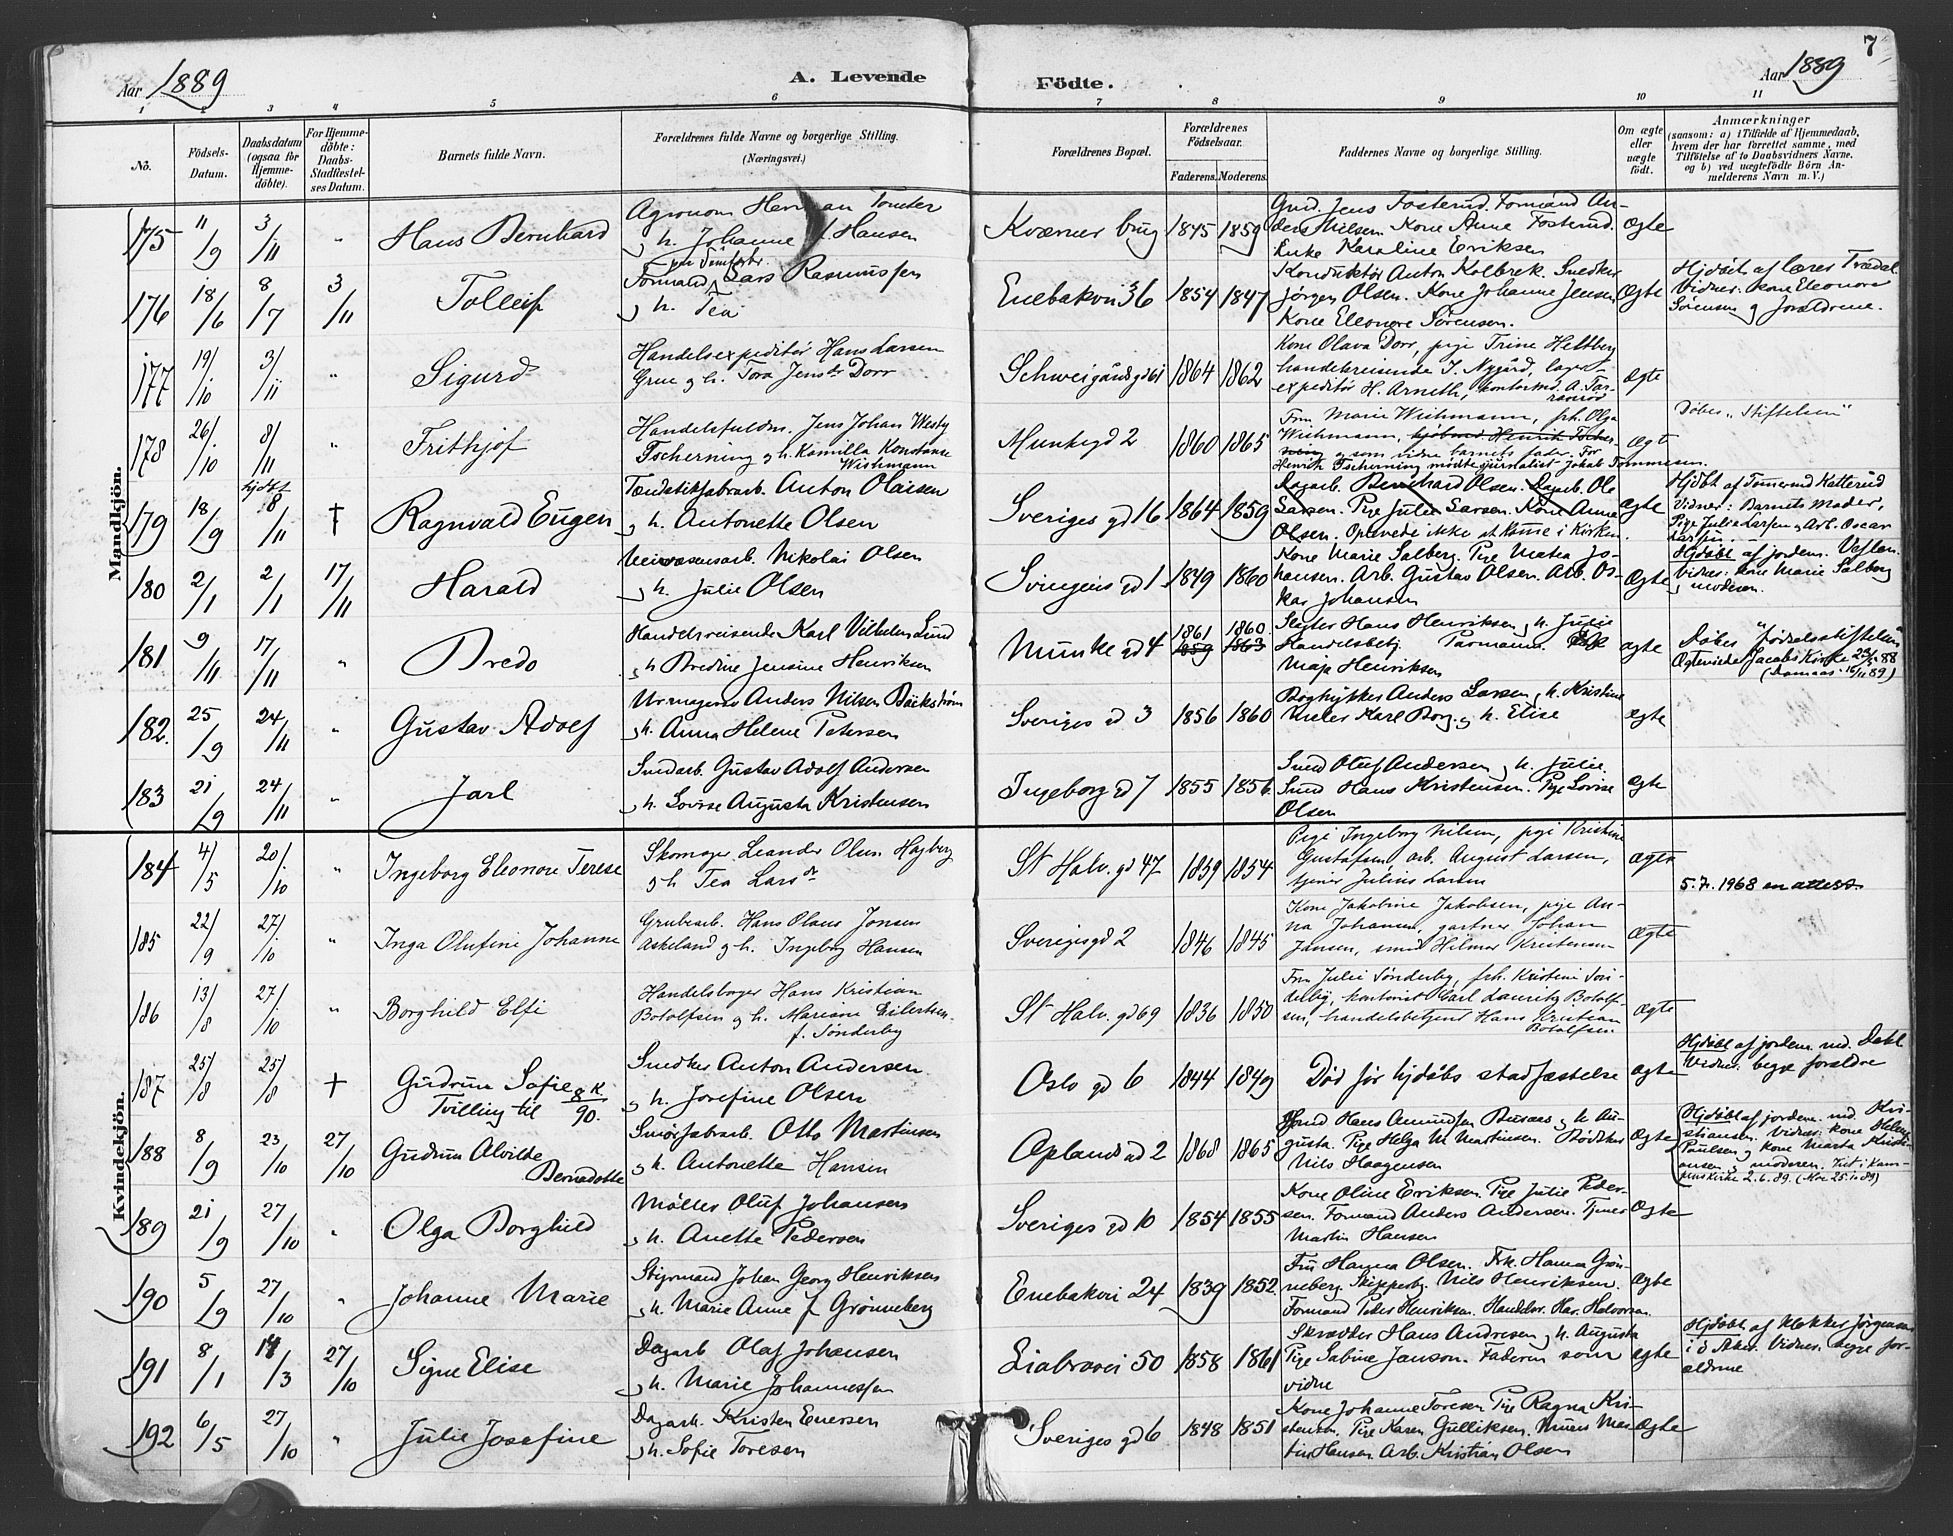 7
Aar 1889
A. Levende Födte.
Aar 1889
1 2 3 4 5 6 7 8 9 10 11
No.
Födsels-Datum.
Daabsdatum (ogsaa for Hjemme-döbte).
For Hjemme-döbte: Daabs-Stadfæstel-ses Datum.
Barnets fulde Navn.
Forældrenes fulde Navne og borgerlige Stilling.
(Næringsvei.)
Forældrenes Bopæl.
Forældrenes Födselsaar.
Faderens. Moderens.
Faddernes Navne og borgerlige Stilling.
Om ægte eller uægte födt.
Anmærkninger
(saasom: a) i Tilfælde af Hjemmedaab,
hvem der har forrettet samme, med
Tilföielse af to Daabsvidners Navne.
og b) ved uægtefödte Börn An-
melderens Navn m. V.)
Mandkjön.
175 11/9 3/11 " Hans Bernhard
Agronom Herman Tomter
og h. Johanne Hansen
Kværner brug 1845 1859
Gmd. Jens Fosterud. Formand An-
ders Nilsen Kone Anne Fosterud.
Enke Karoline Eriksen
Ægte
176 18/6 8/7 3/11 Tolleif
Formand Lars Rasmussen
og h. Tea
Enebakvei 36 1854 1847
Konduktør Anton Kolbrek. Snedker
Jørgen Olsen. Kone Johanne Jensen
Kone Eleonore Sørensen.
Ægte
Hjdøbt af lærer Trædal
Vidner: kone Eleonora
Sørensen og forældrene.
177 19/10 3/11 " Sigurd
Handelsexpeditør Hans Larsen
Grue og h. Tora Jensdr Dorr
Schweigårdsgd 61 1864 1862
Kone Olava Dorr, pige Trine Heltberg
handelsreisende I. Nygård, lager-
expeditør H. Arneth, kontorbud. A. Far-
Ægte
178 26/10 8/11 " Frithjof
Handelsfuldm. Jens Johan Westy
Tscherning og h. Kamilla Konstanse
Wishmann
Munkegd 2 1860 1865
Fru Marie Wishmann, frk. Olga
Wishmann, kjøbmd Henrik Tscher-
ning og som vidne barnets fader. For
Henrik Tscherning mødte journalist Jakob Tommesen.
Ægt
Døbes "Stiftelsen"
179 18/9 hjdbt 8/11 † Ragnvald Eugen
Tændstikfabrarb. Anton Olaisen
og h. Antonette Olsen
Sveriges gd 16 1864 1859
Dagarb. Bernhard Olsen. Dagarb. Ole
Larsen. Pige Julie Larsen. Kone Anne
Olsen. Oplevede ikke at komme i Kirken.
ægte
Hjdøbt af Tømmermd Katterud
Vidner: Barnets Moder,
Pige Julie Larsen og Arb. Oscar
Larsen.
180 2/1 2/1 17/11 Harald
Veivæsensarb. Nikolai Olsen
og h. Julie Olsen
Svingens gd 1 1849 1860
Kone Marie Salberg. Pige Matea Jo-
hansen. Arb. Gustav Olsen. Arb. Os-
kar Johansen
Ægte
Hjdøbt af jordem. Veflen.
Vidner: kone Marie Salberg
og moderen.
181 9/11 17/11 " Bredo
Handelsreisende Karl Vilhelm Lund
og h Bredine Jensine Henriksen
Munke gd 4 1861 1859 1860. 1863
Slagter Hans Henriksen og h. Julie
Handelsbetj. Parmann. Pige
Maja Henriksen
ægte
Døbes "Fødselsstiftelsen"
Ægteviede Jacobs Kirke 23/5 88
(Domaas. 16/11 89)
182. 25/9 24/11 " Gustav Adolf
Urmager Anders Nilsen Bäckstrøm
og h. Anna Helene Petersen
Sveriges gd 3 1856 1860
Boghykker Anders Larsen og h. Kristine
Maler Karl Borg og h. Elise
ægte
183 21/9 24/11 " Jarl
Smedarb. Gustav Adolf Andersen
og h. Lovise Augusta Kristensen
Ingeborg gd 7 1855 1856.
Smed Oluf Andersen og h. Julie.
Smed Hans Kristensen. Pige Lovise
Olsen
ægte
Kvindekjön.
184 4/5 20/10 " Ingeborg Eleonore Terese
Skomager Leander Olsen Hagberg
og h Tea Larsdr
St Halv. gd 47 1859 1854
Pige Ingeborg Nilsen, pige Kristine
Gustafsen, arb. August Larsen,
tjener Julius Larsen
ægte
5.7.1968 en attest
185 22/9 27/10 " Inga Olufine Johanne
Grubearb. Hans Olaus Jonsen
Askeland og h. Ingeborg Hansen
Sverigesgd 2 1846 1845
Kone Jakobine Jakobsen, pige An-
na Johansen, gartner Johan
Jansen, smed Hilmar Kristensen
Ægte
186 13/8 27/10 " Borghild Elfi
Handelsborger Hans Kristian
Botolfsen og h. Mariane Eilertsen
f. Sønderby
St Halv. gd 69 1836 1850
Fru Julie Sønderby, frk. Kristine Søn-
derby, kontorist Carl Lauritz Botolf-
sen, handelsbetjent Hans Kristian
Botolfsen.
Ægte
187 25/8 25/8 † Gudrun Sofie
Tvilling til 8 K. 90.
Snedker Anton Andersen
og h. Josefine Olsen
Oslo gd 6 1844 1849
Død før hjdåbs stadfæstelse
ægte
Hjdøbt af jordem. md. Dahl
Vidner: begge forældre
188 8/9 23/10 27/10 Gudrun Alvilde
Bernadotte
Smørfabrarb. Otto Martinsen
og h. Antonette Hansen
Oplands gd 2 1868 1865
Smed Hans Amundsen Bu og h. Au-
gusta. Pige Helga M. Martinsen. Bødker
Nils Haagensen
Ægte
Hjdøbt af jordem. md. Kri-
stiansen. Vidner: kone Helene
Paulsen og kone Marta Kristi-
ansen og moderen. Viet i Kam-
penskirke 2.6.89. (Moe 25.10.89)
189 21/9 27/10 " Olga Borghild
Møller Oluf Johansen
og h. Anette Pedersen
Sveriges gd 10 1854 1855
Kone Oline Eriksen. Pige Julie Peder-
sen. Formand Anders Andersen. Tjener
Martin Hansen
Ægte
190 5/9 27/10 " Johanne Marie
Styrmand Johan Georg Henriksen
og h. Marie Anne f. Grønneberg
Enebakvei 24 1839 1852
Fru Hanna Olsen. Frk. Hanna Grøn-
neberg. Skipperb. Nils Henriksen.
Formand Peder Henriksen. Handelsr. Har. Halvorsen
Ægte
191 8/1 14/3 27/10 Signe Elise
Dagarb Olaf Johansen
og h. Marie Johannessen
Liabravei 50 1858 1861
Skrædder Hans Andresen og h. Augusta
Pige Sabine Janson. Faderen som
vidne
ægte
Hjdøbt af klokker Jørgensen
i ø Aker. Vidner: begge for-
ældrene
192 6/5 27/10 " Julie Josefine
Dagarb. Kristen Enersen
og h. Sofie Toresen
Sveriges gd 6 1848 1851
Kone Johanne Toresen Pige Ragna Kri-
stensen. Pige Karen Gulliksen. Murer Mar-
tin Hansen Arb. Kristian Olsen
Ægte